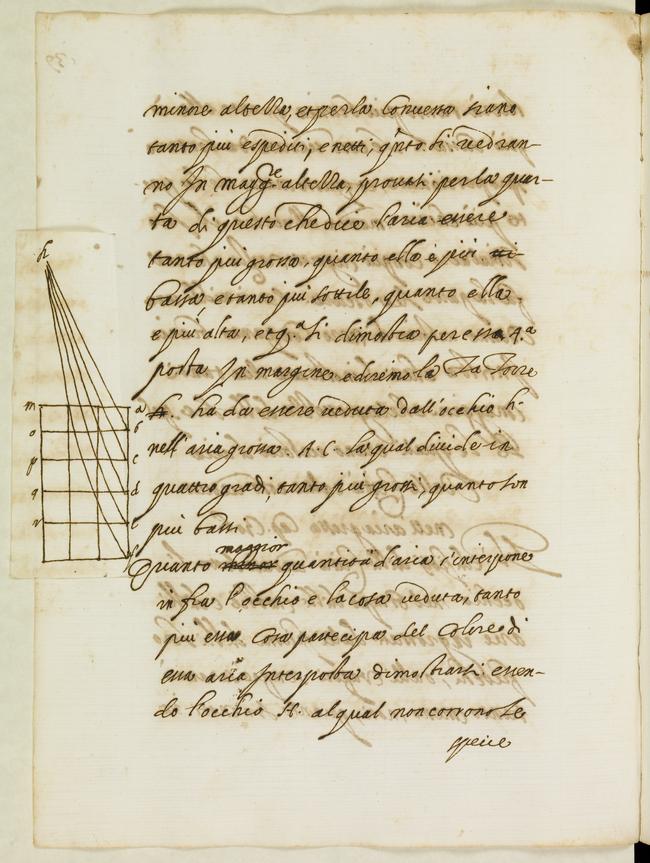 minore altezza, et per la Conversa siano
tanto più espediti, e netti, q.nto si vedran-
no In magg.re altezza, provasi per la quar-
ta di questo che dice l'aria essere
tanto più grossa, quanto ella è più
bassa, e tanto più sottile, quanto ella
e più alta, et q.a si dimostra per essa 4.a
posta In margine e diremo la La Torre
ha da essere veduta dall'occhio h.
nell'aria grossa. A. C. la qual divide in
quattro gradi, tanto più grossi, quanto son
più bassi
Quanto minor maggior quantità d'aria s'interpone
in fra l'occhio e la cosa veduta, tanto
più essa Cosa partecipa del Colore di
essa aria Interposta dimostrasi essen-
do l'occhio H. al qual non corrono le
spetie
h
m a
o b
p c
q d
n e
f